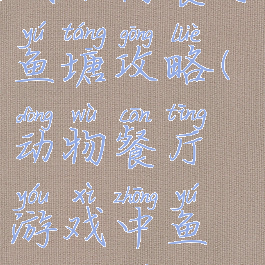 yú táng gōng lüè
鱼塘攻略(
dòng wù cān tīng
动物餐厅
yóu xì zhōng yú
游戏中鱼